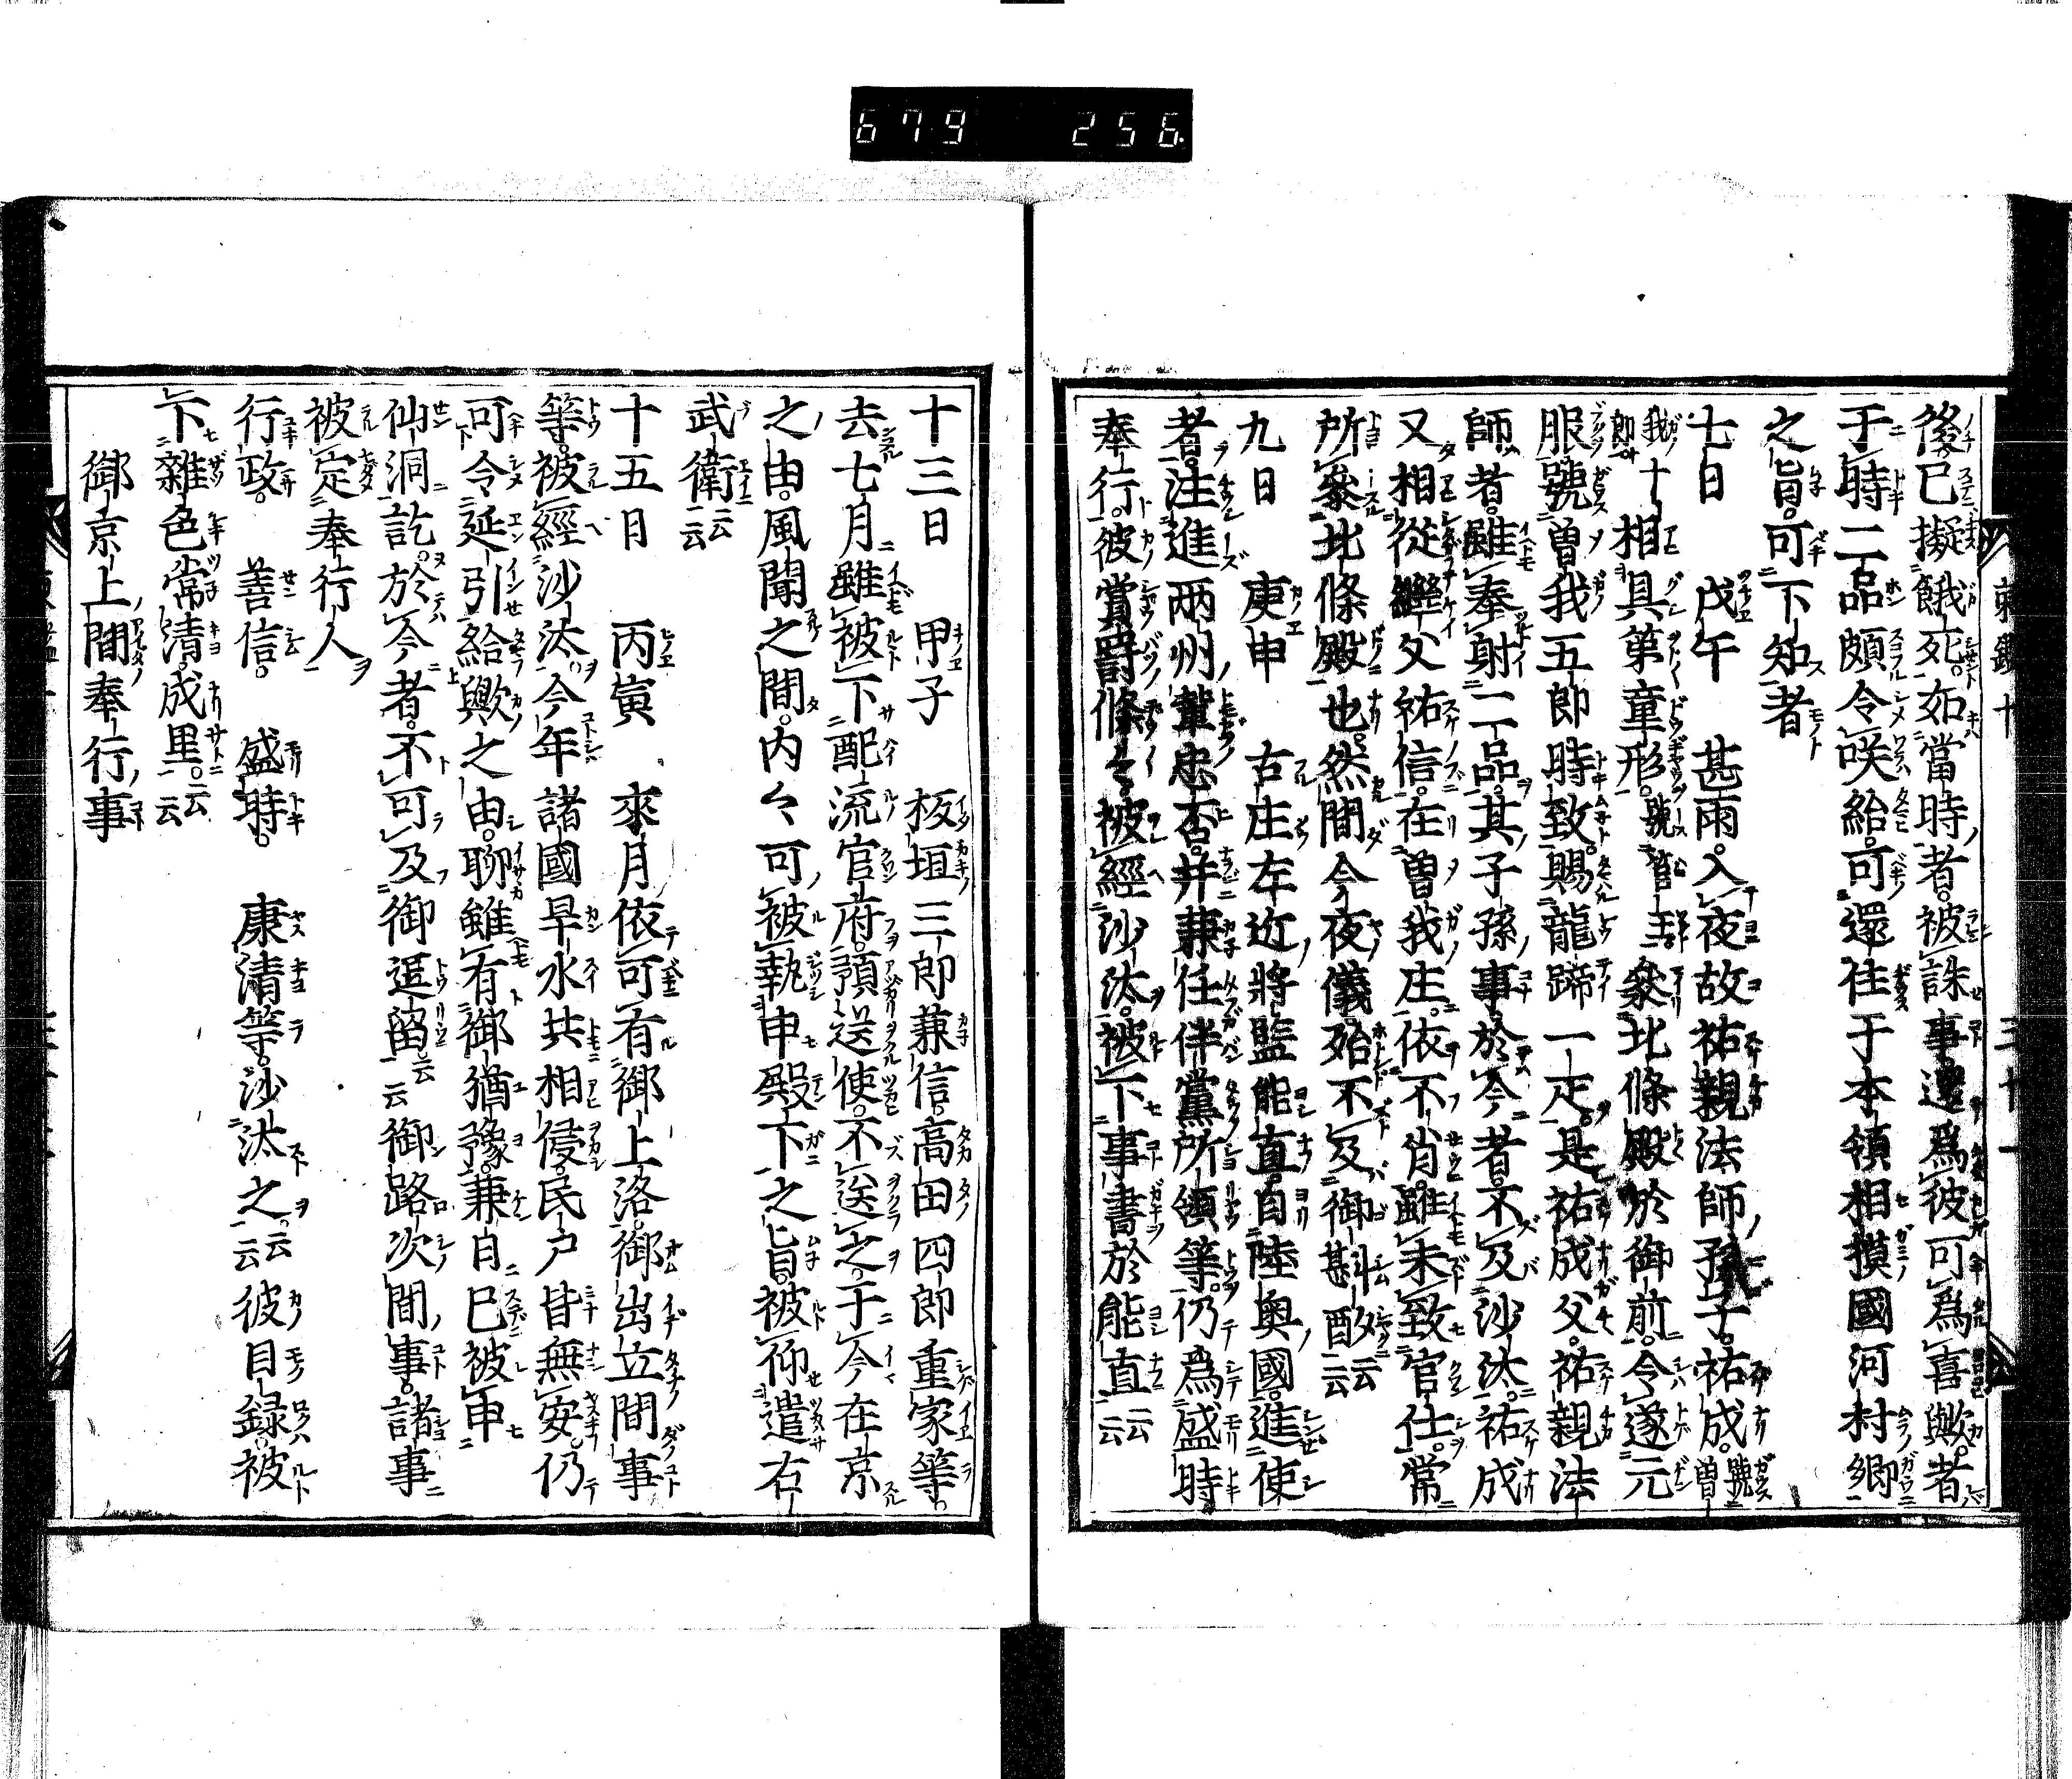 679 256
後。已擬餓死。如當時者。被誅事還爲彼可爲喜歟。者
于時二品頗令咲給。可還住于本領相摸國河村郷
之旨。可下知者
七日 戊午 甚雨。入夜故祐親法師孫子。祐成。號曽
我十郎 相具弟童形。號筥王 參北條殿於御前。令遂元
服號曽我五郎時致。賜龍蹄一疋。是祐成父。祐親法
師者。雖奉射二品。其子孫事於今者。不及沙汰。祐成
又相從繼父祐信。在曽我庄。依不肖。雖未致官仕。常
所參北條殿也。然間今夜儀。殆不及御斟酌云云
九日 庚申 古庄左近將監能直。自陸奧國。進使
者。注進两州輩忠否。并兼任伴黨所領等。仍爲盛時
奉行。彼賞罸條々。被經沙汰。被下事書於能直云云
十三日 甲子 板垣三郎兼信。高田四郎重家等。
去七月雖被下配流官府。預送使。不送之。于今在京
之由。風聞之間。内々可被執申殿下之旨。被仰遣右
武衛云云
十五日 丙寅 來月依可有御上洛。御出立間事
等。被經沙汰。今年諸國旱水共相侵。民户皆無安。仍
可令延引給歟之由。聊雖有御猶豫。兼自已被申
仙洞訖。於今者。不可及御逗留云云 御路次間事。諸事
被定奉行人
行政。 善信。 盛時。 康清等。沙汰之。云云 彼目録。被
下雜色常清。成里。云云
御京上間奉行事